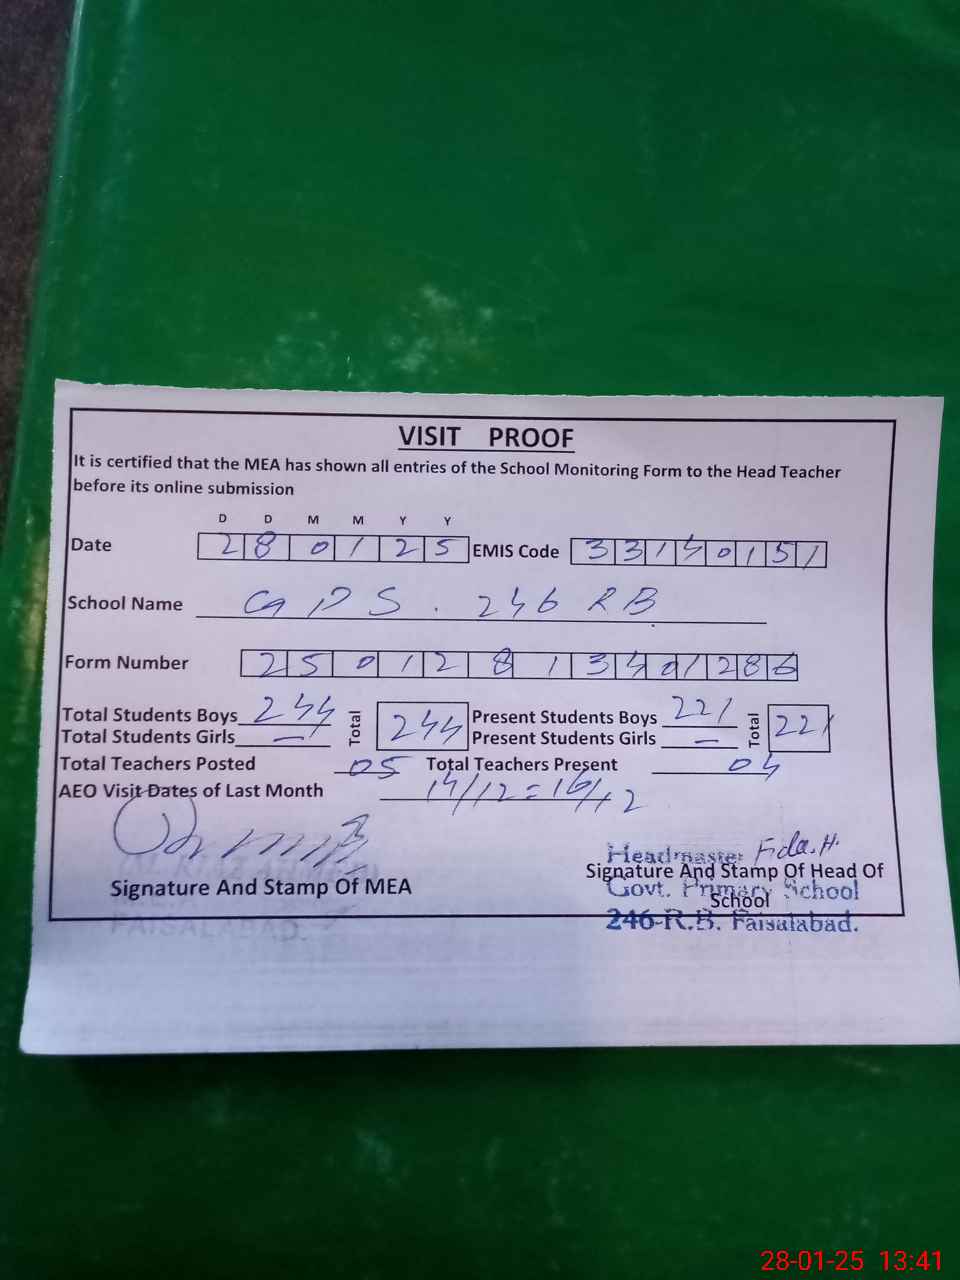 VISIT PROOF
It is certified that the MEA has shown all entries of the School Monitoring Form to the Head Teacher
before its online submission
D D M M Y Y
Date 28 01 25 EMIS Code 33140151
School Name GPS. 246 RB
Form Number 25012813401286
Total Students Boys 244 Total 244 Present Students Boys 221 Total 221
Total Students Girls — Present Students Girls —
Total Teachers Posted 05 Total Teachers Present 04
AEO Visit Dates of Last Month 14/12 = 16/12
Headmaster Fida.H.
Signature And Stamp Of Head Of
School
Govt. Primary School
246-R.B. Faisalabad.
Signature And Stamp Of MEA
FAISALABAD
28-01-25 13:41